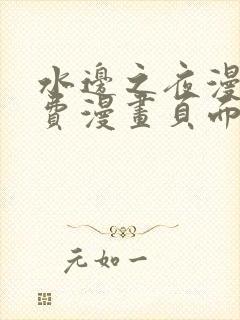 水邊之夜漫
費漫畫頁面
元如一